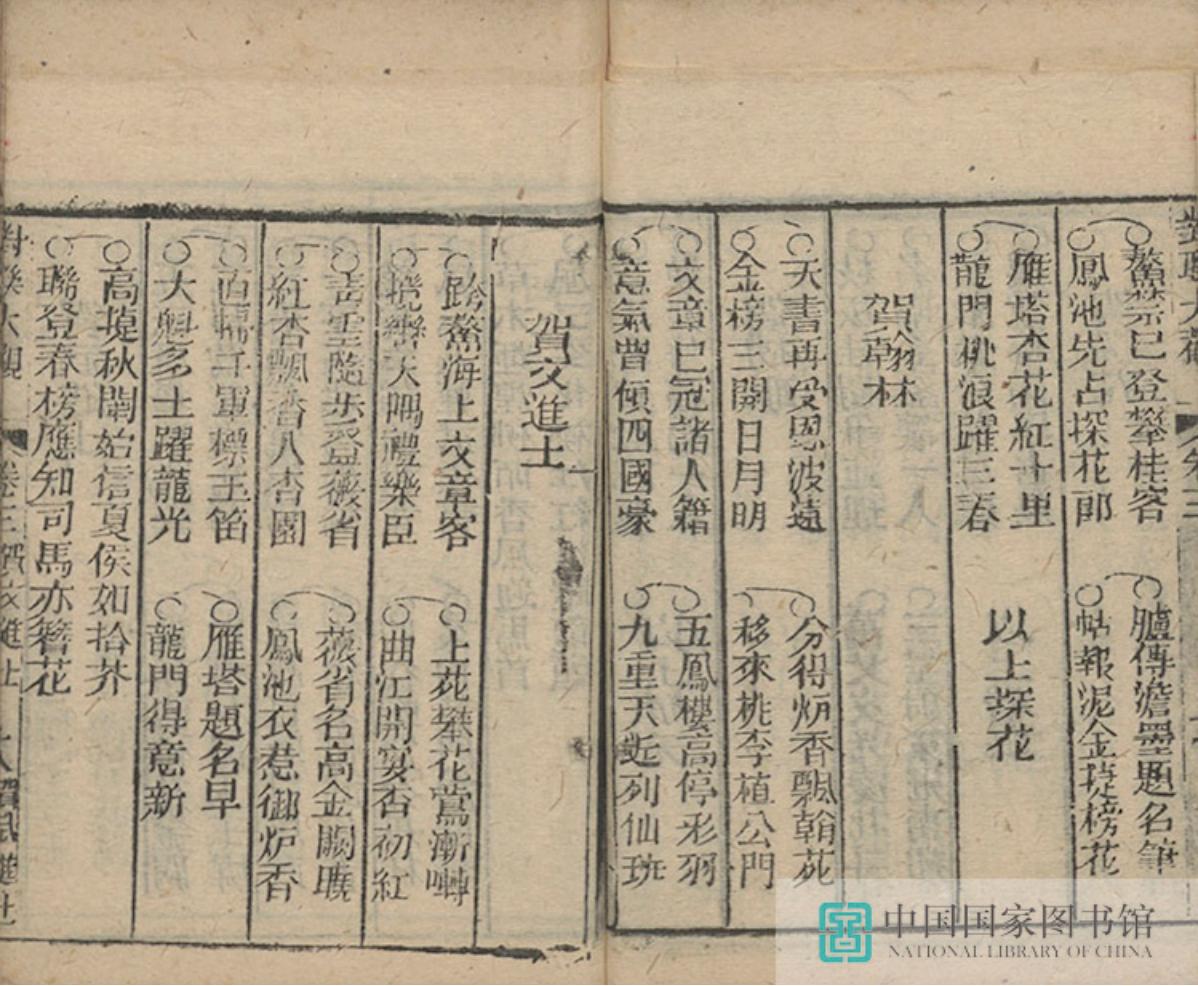 鰲禁已登攀桂客
臚傳澹墨題名筆
鳳池先占探花郎
帖報泥金捷榜花
雁塔杏花紅十里
龍門桃浪躍三春
以上探花
賀翰林
天書再受恩波遠
分得炉香飄翰苑
金榜三開日月明
移來桃李植公門
文章已冠諸人籍
五鳳樓高停彩羽
意氣曾傾四國豪
九重天近列仙班
賀文進士
跨鰲海上文章客
上苑攀花鶯漸囀
天門禮樂臣
曲江開宴杏初紅
青雲隨步登薇省
薇省名高金闕曉
紅杏飄香入杏園
鳳池衣惹御炉香
直掃千軍標玉笛
雁塔題名早
大魁多士躍龍光
龍門得意新
高㨗秋闈始信夏侯如拾芥
聯登春榜應知司馬亦簪花
對聯大觀
卷三賀文進士
中国国家图书馆
NATIONAL LIBRARY OF CHINA